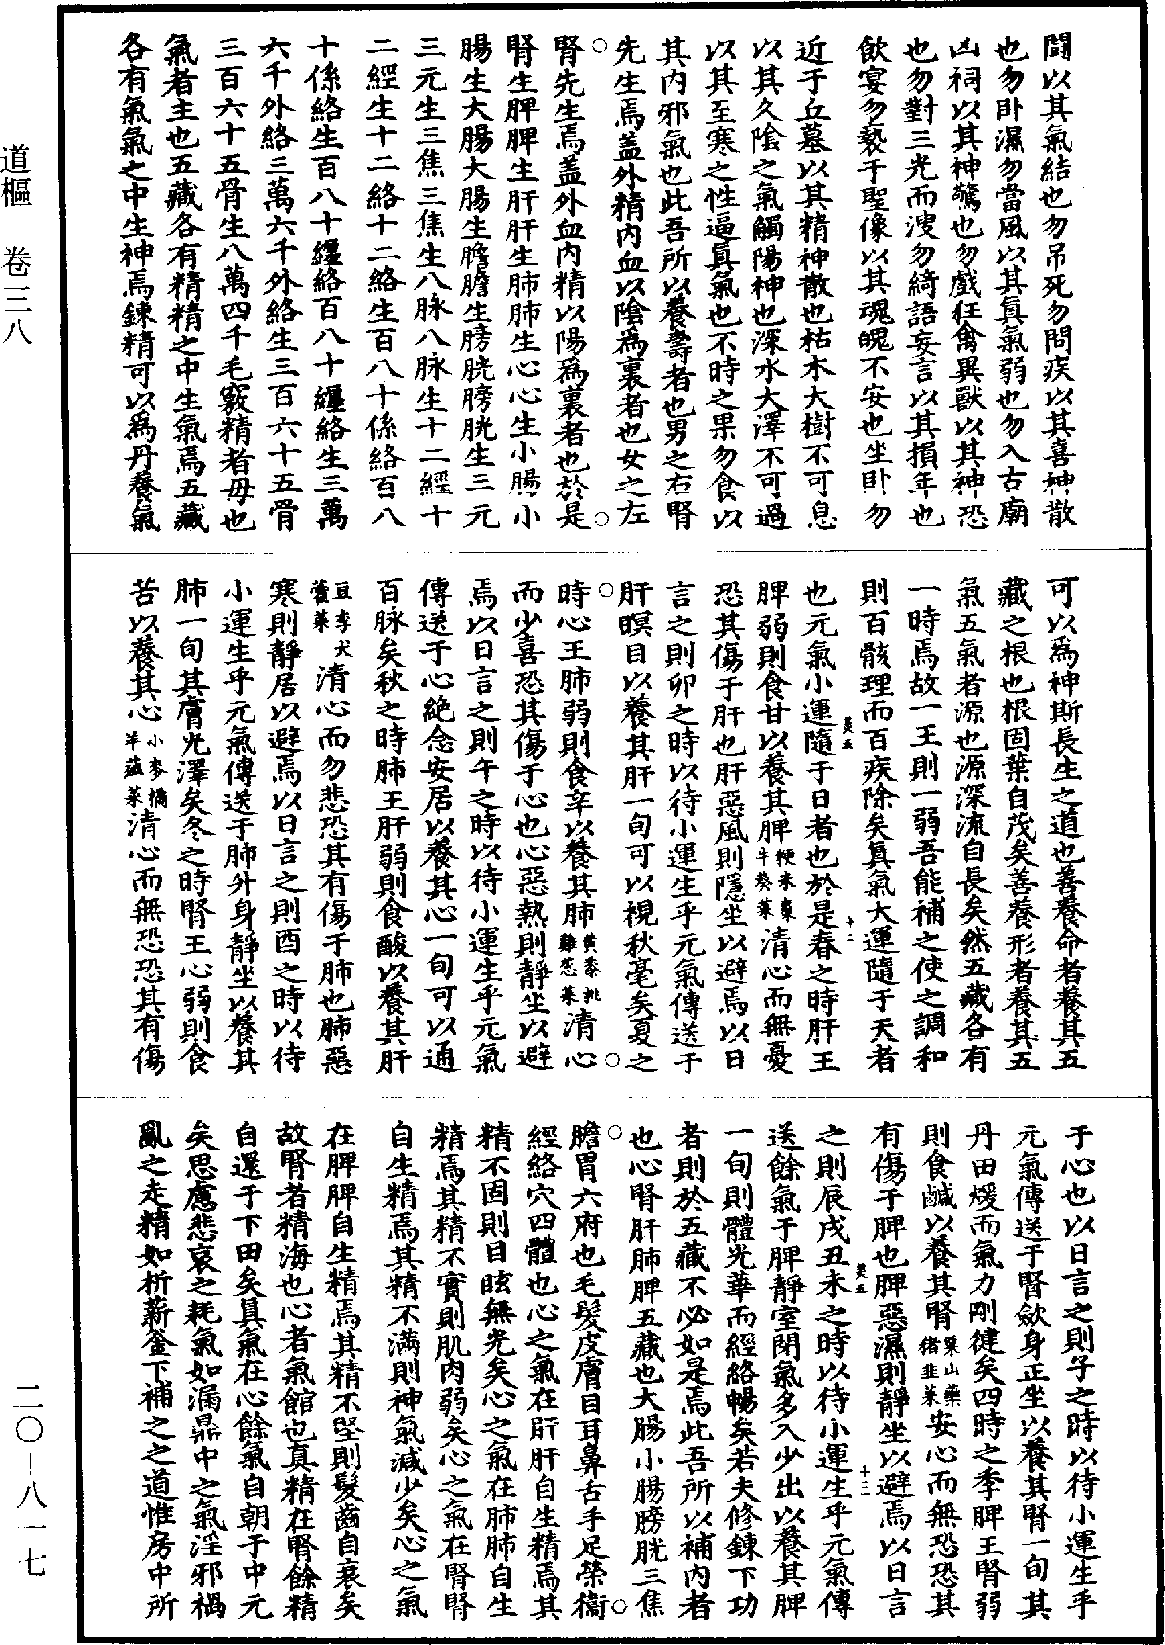 道樞　卷三八
二〇－八一七
鬪以其氣結也勿吊死勿問疾以其喜神散
也勿卧濕勿當風以其真氣弱也勿入古廟
凶祠以其神驚也勿戲狂禽異獸以其神恐
也勿對三光而溲勿綺語妄言以其損年也
飲宴勿褻于聖像以其魂魄不安也坐卧勿
近于丘墓以其精神散也枯木大樹不可息
以其久陰之氣觸陽神也深水大澤不可過
以其至寒之性逼真氣也不時之果勿食以
其內邪氣也此吾所以養壽者也男之右腎
先生焉蓋外精內血以陰爲裏者也女之左
腎先生焉蓋外血內精以陽爲裏者也於是
腎生脾脾生肝肝生肺肺生心心生小腸小
腸生大腸大腸生膽膽生膀胱膀胱生三元
三元生三焦三焦生八脉八脉生十二經十
二經生十二絡十二絡生百八十係絡百八
十係絡生百八十纏絡百八十纏絡生三萬
六千外絡三萬六千外絡生三百六十五骨
三百六十五骨生八萬四千毛竅精者毋也
氣者主也五藏各有精精之中生氣焉五藏
各有氣氣之中生神焉鍊精可以爲丹養氣
可以爲神斯長生之道也善養命者養其五
藏之根也根固葉自茂矣善養形者養其五
氣五氣者源也源深流自長矣然五藏各有
一時焉故一王則一弱吾能補之使之調和
則百骸理而百疾除矣真氣大運隨于天者
也元氣小運隨于日者也於是春之時肝王
脾弱則食甘以養其脾粳米棗牛葵菜清心而無憂
恐其傷于肝也肝惡風則隱坐以避焉以日
言之則卯之時以待小運生乎元氣傳送于
肝瞑目以養其肝一旬可以視秋毫矣夏之
時心王肺弱則食辛以養其肺黃黍桃雞葱菜清心
而少喜恐其傷于心也心惡熱則靜坐以避
焉以日言之則午之時以待小運生乎元氣
傳送于心絕念安居以養其心一旬可以通
百脉矣秋之時肺王肝弱則食酸以養其肝
豆李犬藿菜清心而勿悲恐其有傷于肺也肺惡
寒則靜居以避焉以日言之則酉之時以待
小運生乎元氣傳送于肺外身靜坐以養其
肺一旬其膚光澤矣冬之時腎王心弱則食
苦以養其心小麥橘羊薤菜清心而無恐恐其有傷
于心也以日言之則子之時以待小運生乎
元氣傳送于腎斂身正坐以養其腎一旬其
丹田煖而氣力剛健矣四時之季脾王腎弱
則食鹹以養其腎栗山藥猪韭菜安心而無恐恐其
有傷于脾也脾惡濕則靜坐以避焉以日言
之則辰戌丑未之時以待小運生乎元氣傳
送餘氣于脾靜室閉氣多入少出以養其脾
一旬則體光華而經絡暢矣若夫修鍊下功
者則於五藏不必如是焉此吾所以補內者
也心腎肝肺脾五藏也大腸小腸膀胱三焦
膽胃六府也毛髮皮膚目耳鼻舌手足榮衞
經絡穴四體也心之氣在肝肝自生精焉其
精不固則目眩無光矣心之氣在肺肺自生
精焉其精不實則肌肉弱矣心之氣在腎腎
自生精焉其精不滿則神氣減少矣心之氣
在脾脾自生精焉其精不堅則髮齒自衰矣
故腎者精海也心者氣館也真精在腎餘精
自還于下田矣真氣在心餘氣自朝于中元
矣思慮悲哀之耗氣如漏鼎中之氣淫邪禍
亂之走精如析薪釜下補之之道惟房中所